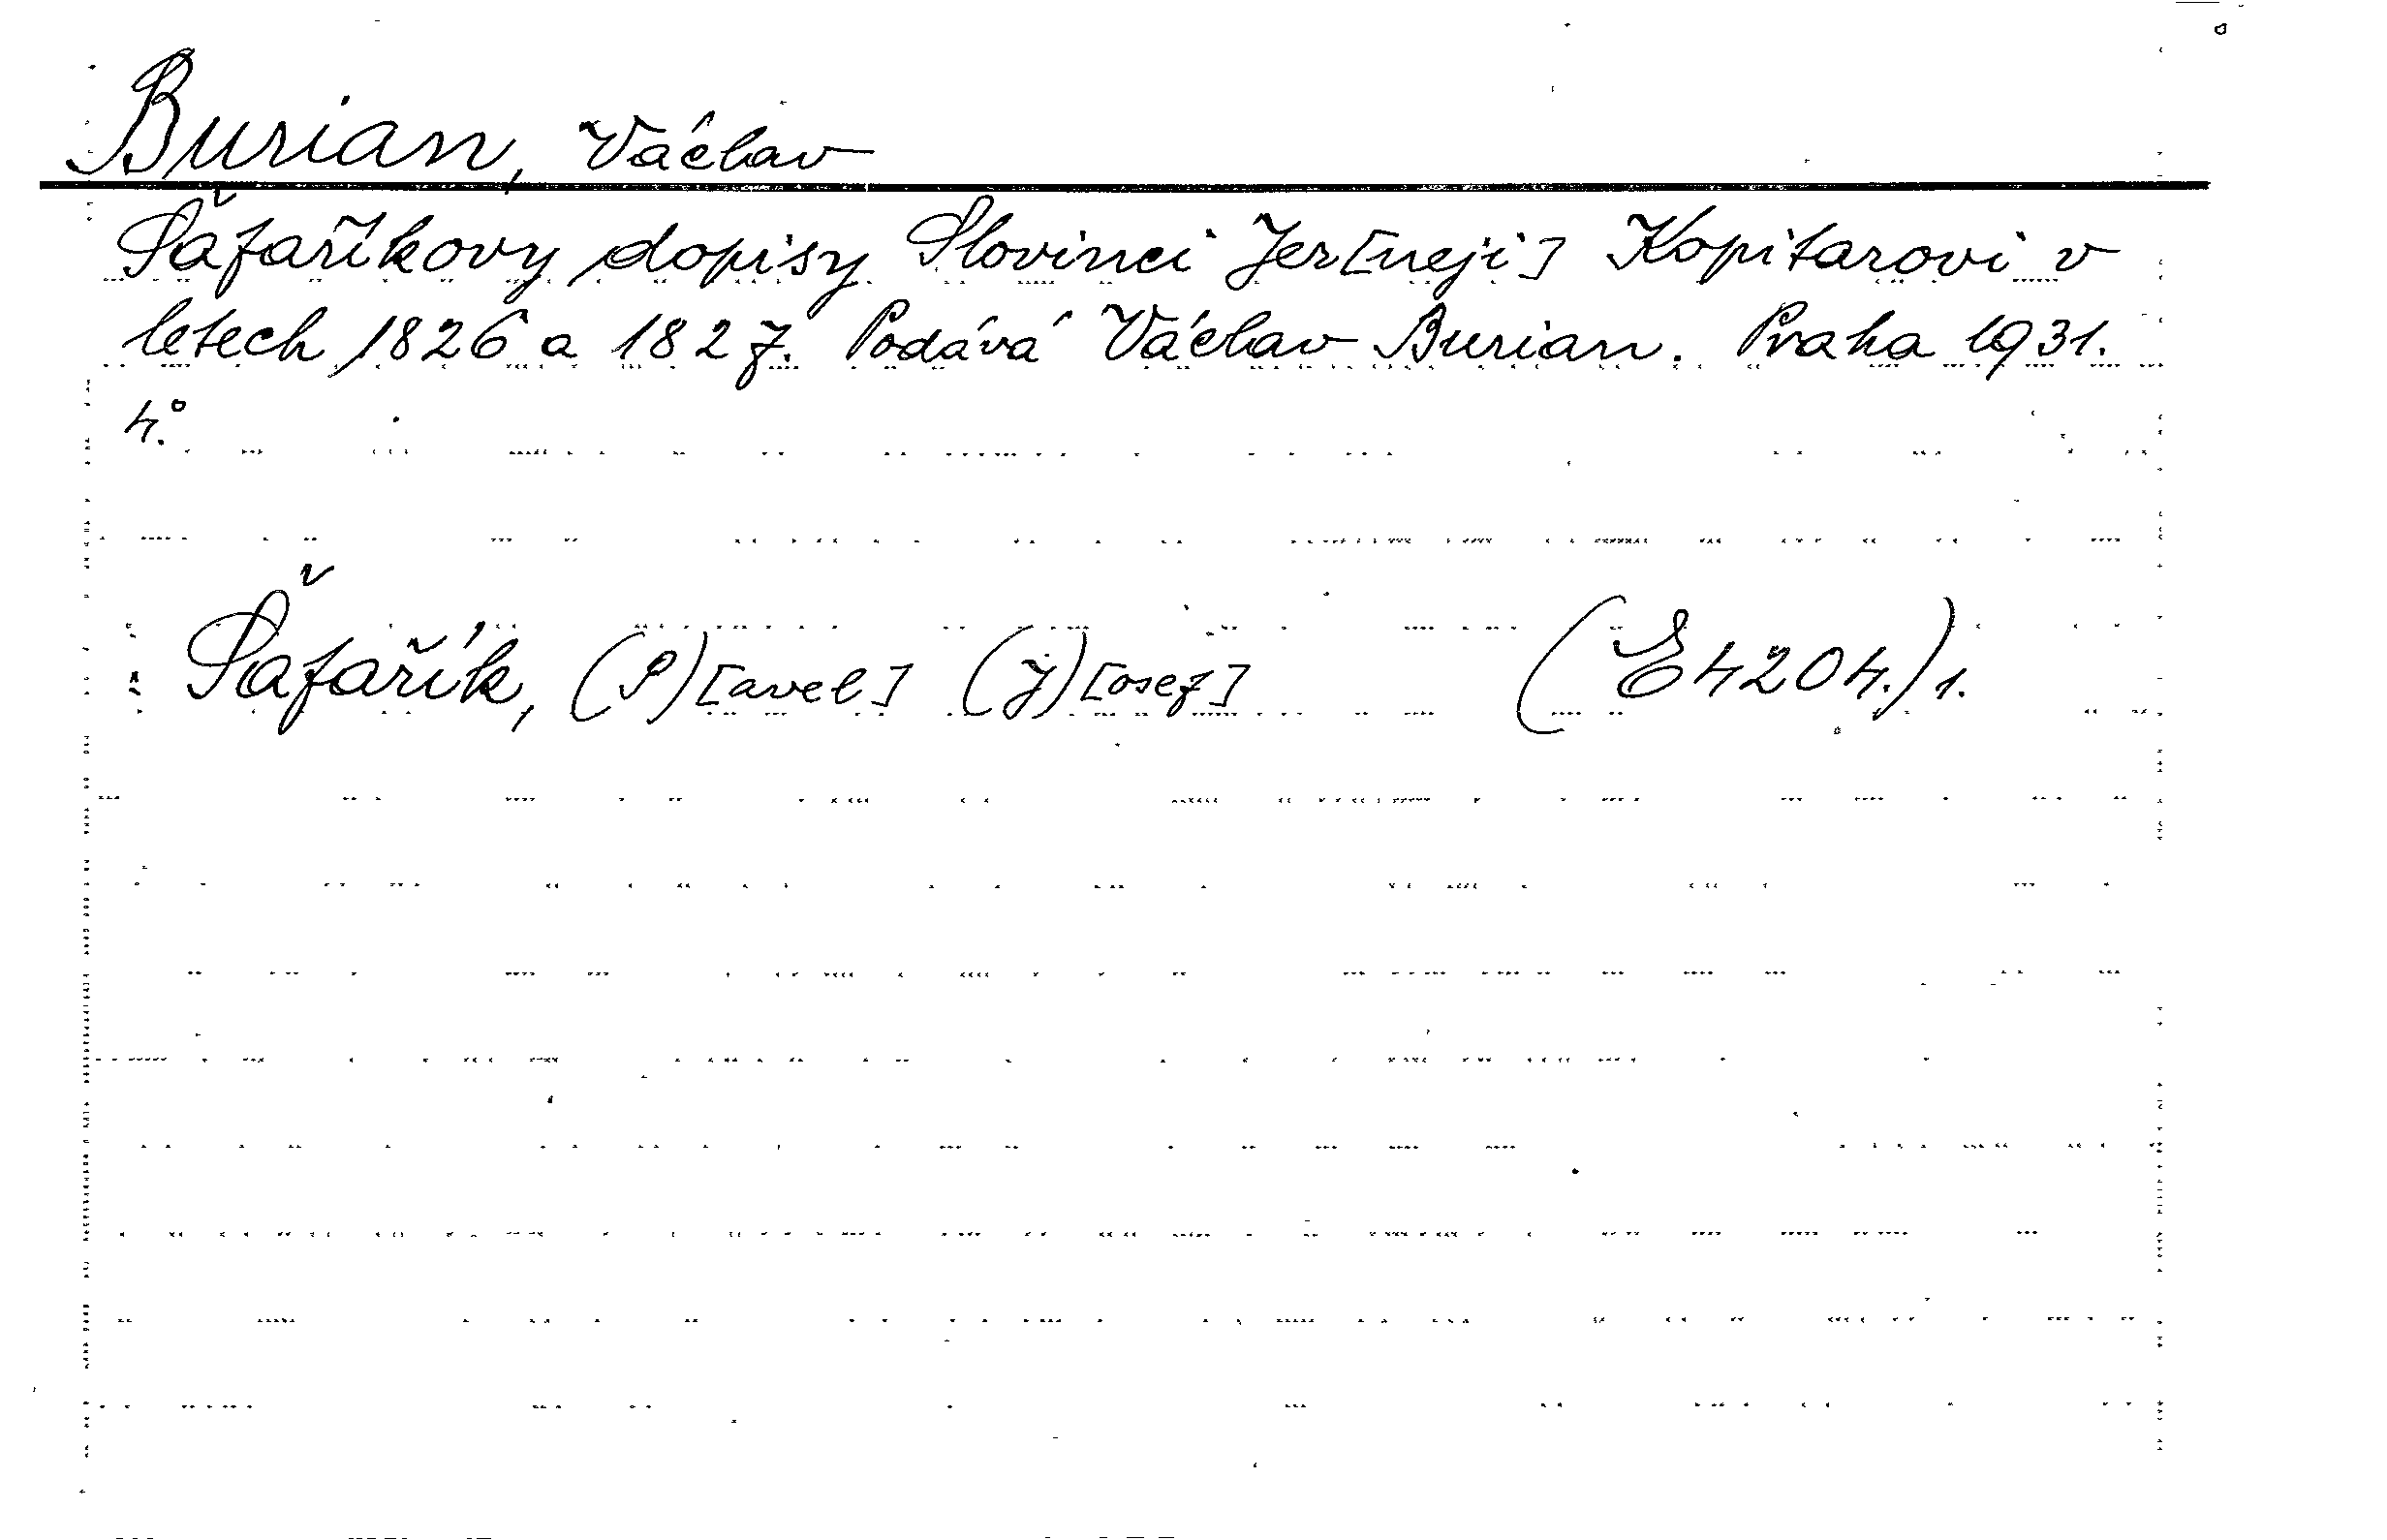 Burian, Václav
Šafaříkovy dopisy Slovinci Jer[neji] Kopitarovi v
letech 1826 a 1827. Podává Václav Burian. Praha 1931.
4.°
Šafařík, (P)[avel] (J)[osef] (E4204.)1.